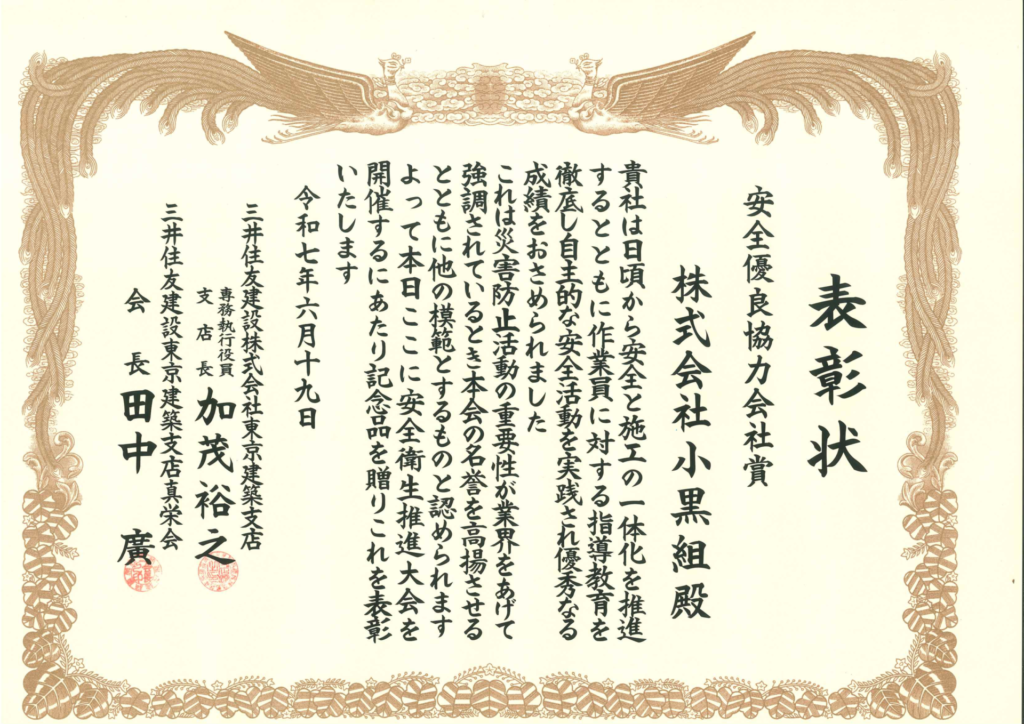 表彰状
安全優良協力会社賞
株式会社小黒組殿
貴社は日頃から安全と施工の一体化を推進
するとともに作業員に対する指導教育を
徹底し自主的な安全活動を実践され優秀なる
成績をおさめられました
これは災害防止活動の重要性が業界をあげて
強調されているとき本会の名誉を高揚させる
とともに他の模範とするものと認められます
よって本日ここに安全衛生推進大会を
開催するにあたり記念品を贈りこれを表彰
いたします
令和七年六月十九日
三井住友建設株式会社東京建築支店
専務執行役員
支店長
加茂裕之
三井住友建設東京建築支店真栄会
会長
田中廣